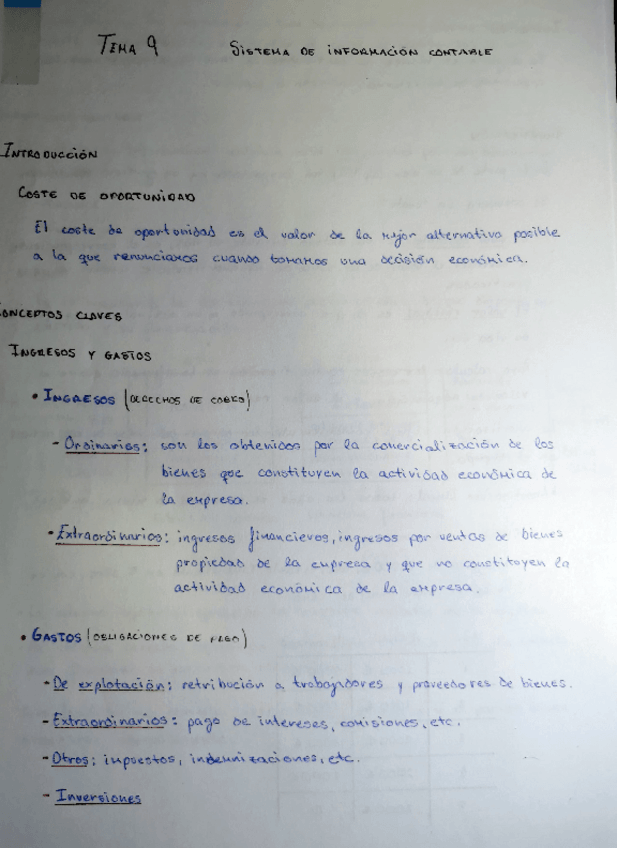 TEMA 9 SISTEMA DE INFORMACIÓN CONTABLE
INTRODUCCIÓN
COSTE DE OPORTUNIDAD
El coste de oportunidad es el valor de la mejor alternativa posible
a la que renunciamos cuando tomamos una decisión económica.
CONCEPTOS CLAVES
INGRESOS Y GASTOS
• INGRESOS (DERECHOS DE COBRO)
- Ordinarios: son los obtenidos por la comercialización de los
bienes que constituyen la actividad económica de
la empresa.
- Extraordinarios: ingresos financieros, ingresos por ventas de bienes
propiedad de la empresa y que no constituyen la
actividad económica de la empresa.
• GASTOS (OBLIGACIONES DE PAGO)
- De explotación: retribución a trabajadores y proveedores de bienes.
- Extraordinarios: pago de intereses, comisiones, etc.
- Otros: impuestos, indemnizaciones, etc.
- Inversiones